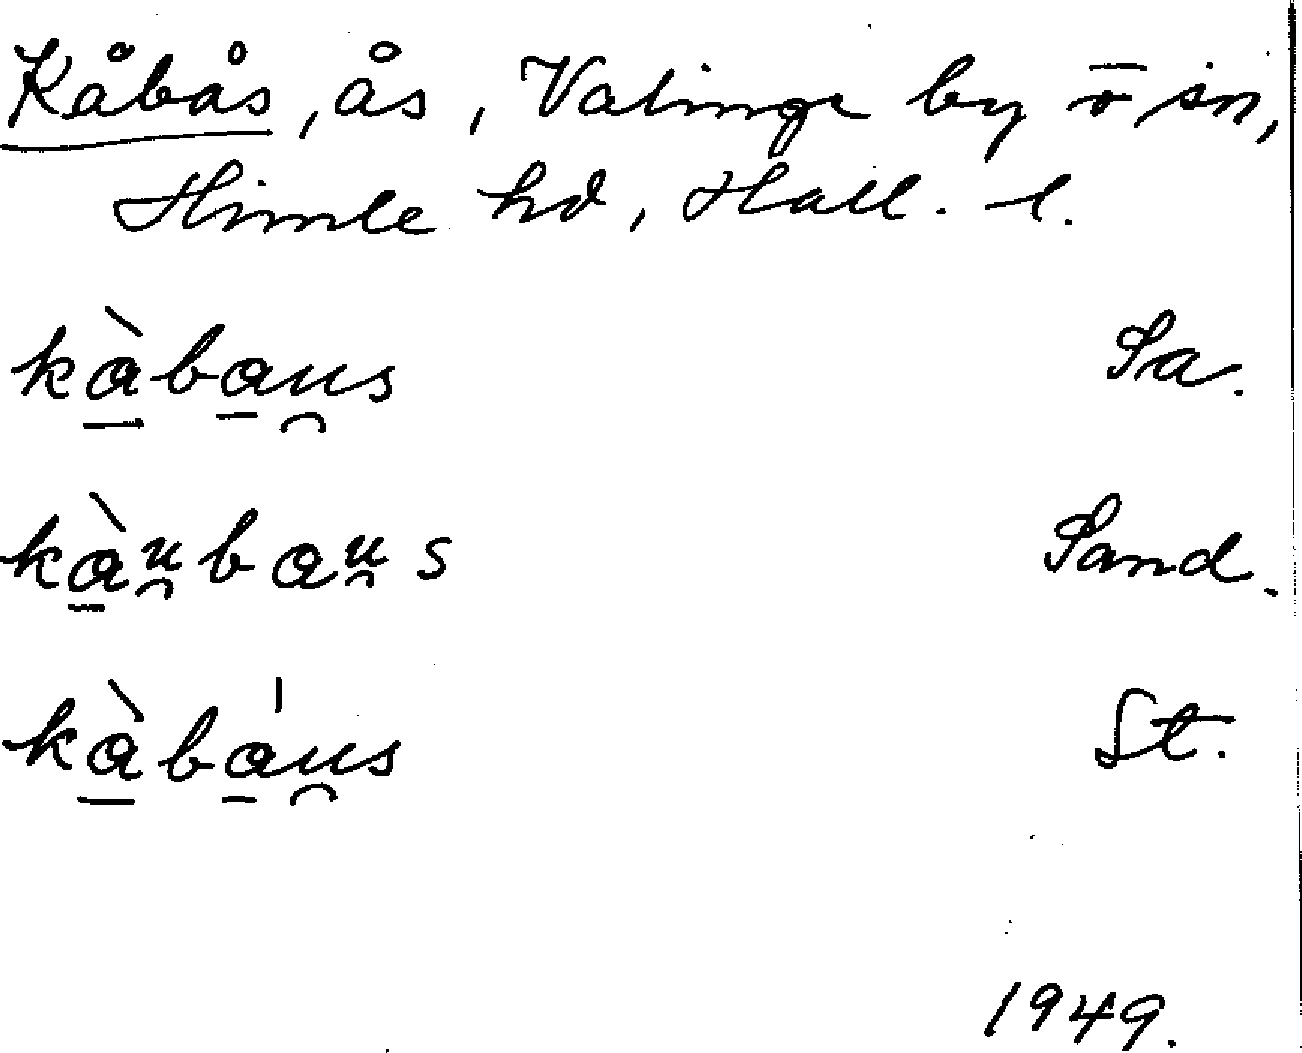 Kåbås, ås, Valinge by o sn,
Himle hd, Hall. l.
kàbau̯s Sa.
kàu̯bau̯s Sand.
kàbáu̯s St.
1949.